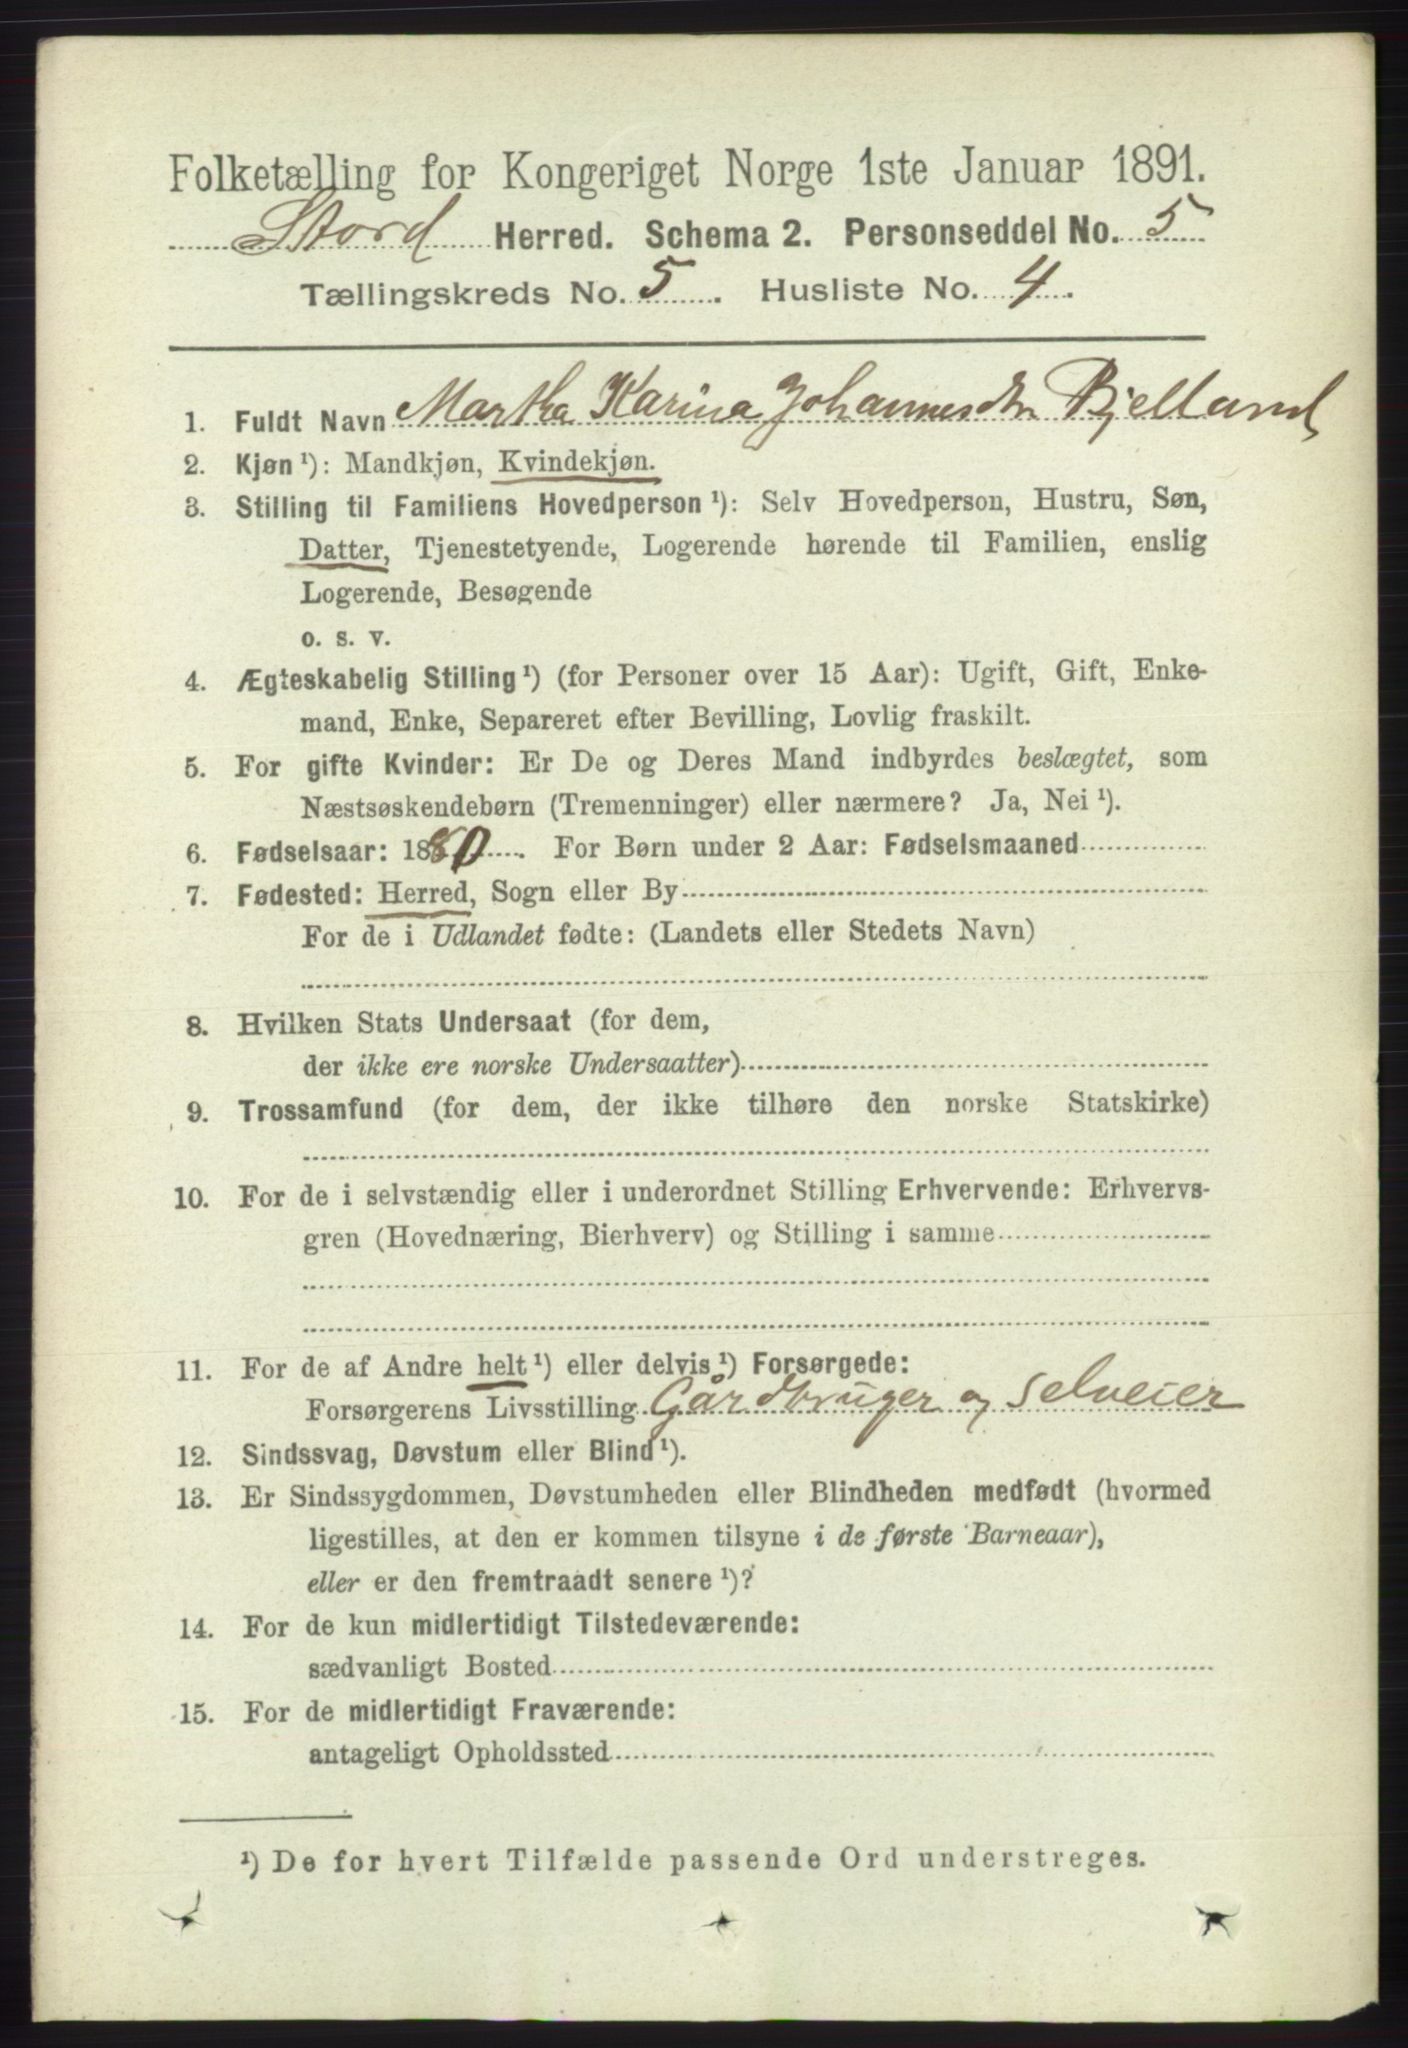 Folketælling for Kongeriget Norge 1ste Januar 1891.
Stord Herred. Schema 2. Personseddel No. 5
Tællingskreds No. 5. Husliste No. 4.
1. Fuldt Navn Martha Karina Johannesdtr Bjelland
2. Kjøn ¹): Mandkjøn, Kvindekjøn.
3. Stilling til Familiens Hovedperson ¹): Selv Hovedperson, Hustru, Søn,
Datter, Tjenestetyende, Logerende hørende til Familien, enslig
Logerende, Besøgende
o. s. v.
4. Ægteskabelig Stilling ¹) (for Personer over 15 Aar): Ugift, Gift, Enke-
mand, Enke, Separeret efter Bevilling, Lovlig fraskilt.
5. For gifte Kvinder: Er De og Deres Mand indbyrdes beslægtet, som
Næstsøskendebørn (Tremenninger) eller nærmere? Ja, Nei ¹).
6. Fødselsaar: 1880. For Børn under 2 Aar: Fødselsmaaned
7. Fødested: Herred, Sogn eller By
For de i Udlandet fødte: (Landets eller Stedets Navn)
8. Hvilken Stats Undersaat (for dem,
der ikke ere norske Undersaatter)
9. Trossamfund (for dem, der ikke tilhøre den norske Statskirke)
10. For de i selvstændig eller i underordnet Stilling Erhvervende: Erhvervs-
gren (Hovednæring, Bierhverv) og Stilling i samme
11. For de af Andre helt ¹) eller delvis ¹) Forsørgede:
Forsørgerens Livsstilling Gårdbruger og selveier
12. Sindssvag, Døvstum eller Blind ¹).
13. Er Sindssygdommen, Døvstumheden eller Blindheden medfødt (hvormed
ligestilles, at den er kommen tilsyne i de første Barneaar),
eller er den fremtraadt senere ¹)?
14. For de kun midlertidigt Tilstedeværende:
sædvanligt Bosted
15. For de midlertidigt Fraværende:
antageligt Opholdssted
¹) De for hvert Tilfælde passende Ord understreges.